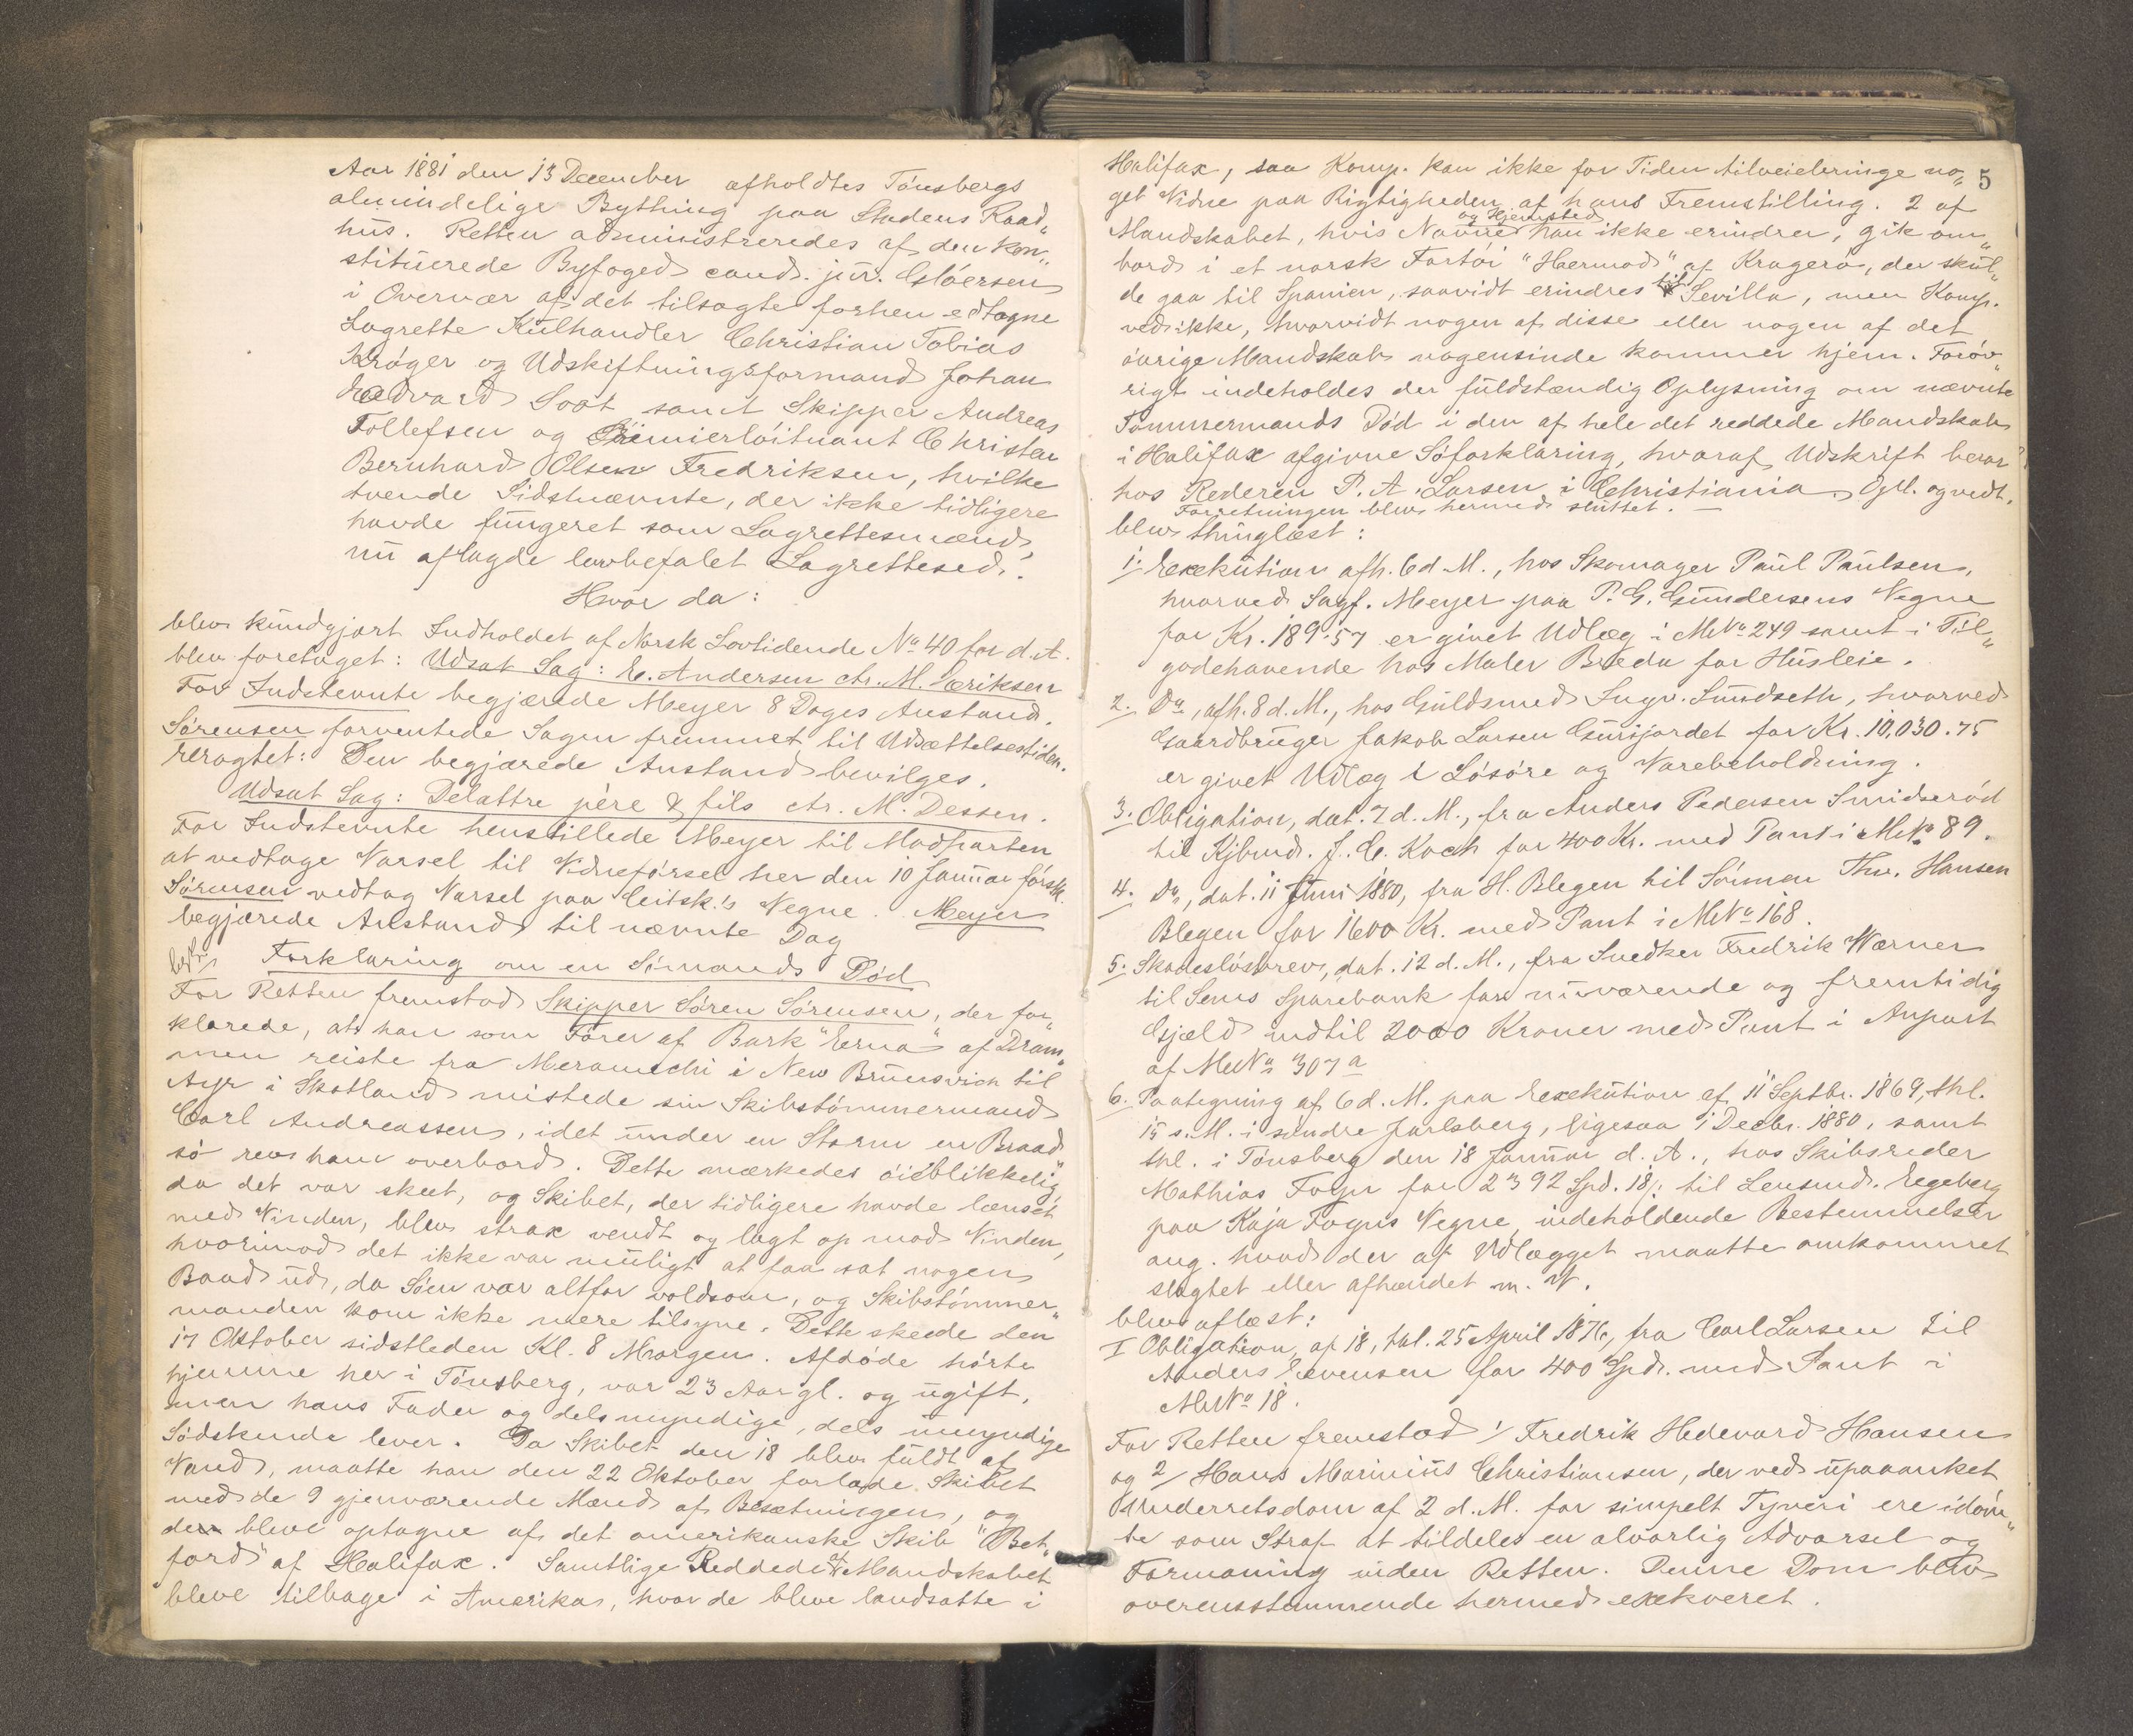 Aar 1881 den 13 December afholdtes Tönsbergs
almindelige Bything paa Stadens Raad„
hus. Retten administreredes af den kon„
stituerede Byfoged cand. jur. Glöersen
i Overvær af det tilsagte forhen edtagne
Lagrette Kulhandler Christian Tobias
Kröger og Udskiftningsformand Johan
Edvard Soot samt Skipper Andreas
Tollefsen og Premierlöitnant Christen
Bernhard Olsen Fredriksen, hvilke
tvende Sidstnævnte, der ikke tidligere
havde fungeret som Lagrettesmænd,
nu aflagde lovbefalet Lagrettesed.
Hvor da:
blev kundgjort Indholdet af Norsk Lovtidende No 40 for d. A.
blev foretaget: Udsat Sag: E. Andersen ctr. M. Eriksen
For Indstevnte begjærede Meyer 8 Dages Anstand.
Sörensen forventede Sagen fremmet til Udsættelsestiden.
Eragtet: Den begjærede Anstand bevilges.
Udsat Sag: Delattre père & fils ctr. M. Dessen.
For Indstevnte henstillede Meyer til Modparten
at vedtage Varsel til Vidneförsel her den 10 Januar förstk.
Sörensen vedtag Varsel paa Citsk.'s Vegne. Meyer
begjærede Anstand til nævnte Dag
Forklaring om en Sömands Död
For Retten fremstod Skipper Sören Sörensen, der for„
klarede, at han som Förer af Bark "Erna" af Dram„
men reiste fra Meramichi i New Brunsvich til
Ayr i Skotland mistede sin Skibstömmermand
Carl Andreassen, idet under en Storm en Braad
sö rev ham overbord. Dette mærkedes öieblikkelig
da det var skeet, og Skibet, der tidligere havde lænset
med Vinden, blev strax vendt og lagt op mod Vinden,
hvorimod det ikke var muligt at faa sat nogen
Baad ud, da Söen var altfor voldsom, og Skibstömmer„
manden kom ikke mere tilsyne. Dette skeede den
17 Oktober sidstleden Kl. 8 Morgen. Afdöde hörte
hjemme her i Tönsberg, var 23 Aar gl. og ugift,
men hans Fader og dels myndige, dels umyndige
Södskende lever. Da Skibet den 18 blev fuldt af
Vand, maatte han den 22 Oktober forlade Skibet
med de 9 gjenværende Mænd af Besætningen, og
de bleve optagne af det amerikanske Skib "Bet„
ford" af Halifax. Samtlige Reddede af Mandskabet
bleve tilbage i Amerika, hvor de bleve landsatte i
5
Halifax, saa Komp. kan ikke for Tiden tilveiebringe no„
get Vidne paa Rigtigheden af hans Fremstilling. 2 af
og Hjemsted
Mandskabet, hvis Navne han ikke erindrer, gik om„
bord i et norsk Fartöi "Hermod" af Kragerö, der skul„
de gaa til Spanien, saavidt erindres til Sevilla, men Komp.
ved ikke, hvorvidt nogen af disse eller nogen af det
övrige Mandskab nogensinde kommer hjem. Foröv„
rigt indeholdes der fuldstændig Oplysning om nævnte
Tömmermands Död i den af hele det reddede Mandskab
i Halifax afgivne Söforklaring, hvoraf Udskrift beror
hos Rederen P. A. Larsen i Christiania. Opl. og vedt.
Forretningen blev hermed sluttet.
blev thinglæst:
1. Exekution afh. 6 d. M., hos Skomager Paul Paulsen,
hvorved Sagf. Meyer paa P. G. Gundersens Vegne
for Kr. 189.57 er givet Udlæg i MNo 249 samt i Til„
godehavende hos Maler Breda for Husleie.
2. Do, afh. 8 d. M., hos Guldsmed Ingv. Sundseth, hvorved
Gaardbruger Jakob Larsen Gunjordet for Kr. 10,030.75
er givet Udlæg i Lösöre og Varebeholdning.
3. Obligation, dat. 7 d. M., fra Anders Pedersen Smidseröd
til Kjbmd. J. C. Koch for 400 Kr. med Pant i MNo 89.
4. Do, dat. 11 Juni 1880, fra H. Blegen til Sönnen Thv. Hansen
Blegen for 1600 Kr. med Pant i MNo 168.
5. Skadeslösbrev, dat. 12 d. M., fra Snedker Fredrik Wærner
til Sems Sparebank for nuværende og fremtidig
Gjæld indtil 2000 Kroner med Pant i Anpart
af MNo 307 a
6. Paategning af 6 d. M. paa Exekution af 11 Septbr. 1869, thl.
15 s. M. i söndre Jarlsberg, ligesaa 1 Decbr. 1880, samt
thl. i Tönsberg den 18 Januar d. A., hos Skibsreder
Mathias Foyn for 2392 Spd. 18 s. til Lensmd. Egeberg
paa Kaja Foyns Vegne, indeholdende Bestemmelser
ang. hvad der af Udlægget maatte omkommet
slagtet eller afhændet m. V.
blev aflæst:
I Obligation af 18, thl. 25 April 1876, fra Carl Larsen til
Anders Evensen for 400 Spd. med Pant i
MNo 18.
For Retten fremstod 1/ Fredrik Hedevard Hansen
og 2/ Hans Marinius Christiansen, der ved upaaanket
Underretsdom af 2 d. M. for simpelt Tyveri ere idöm„
te som Straf at tildeles en alvorlig Advarsel og
Formaning inden Retten. Denne Dom blev
overensstemmende hermed exekveret.